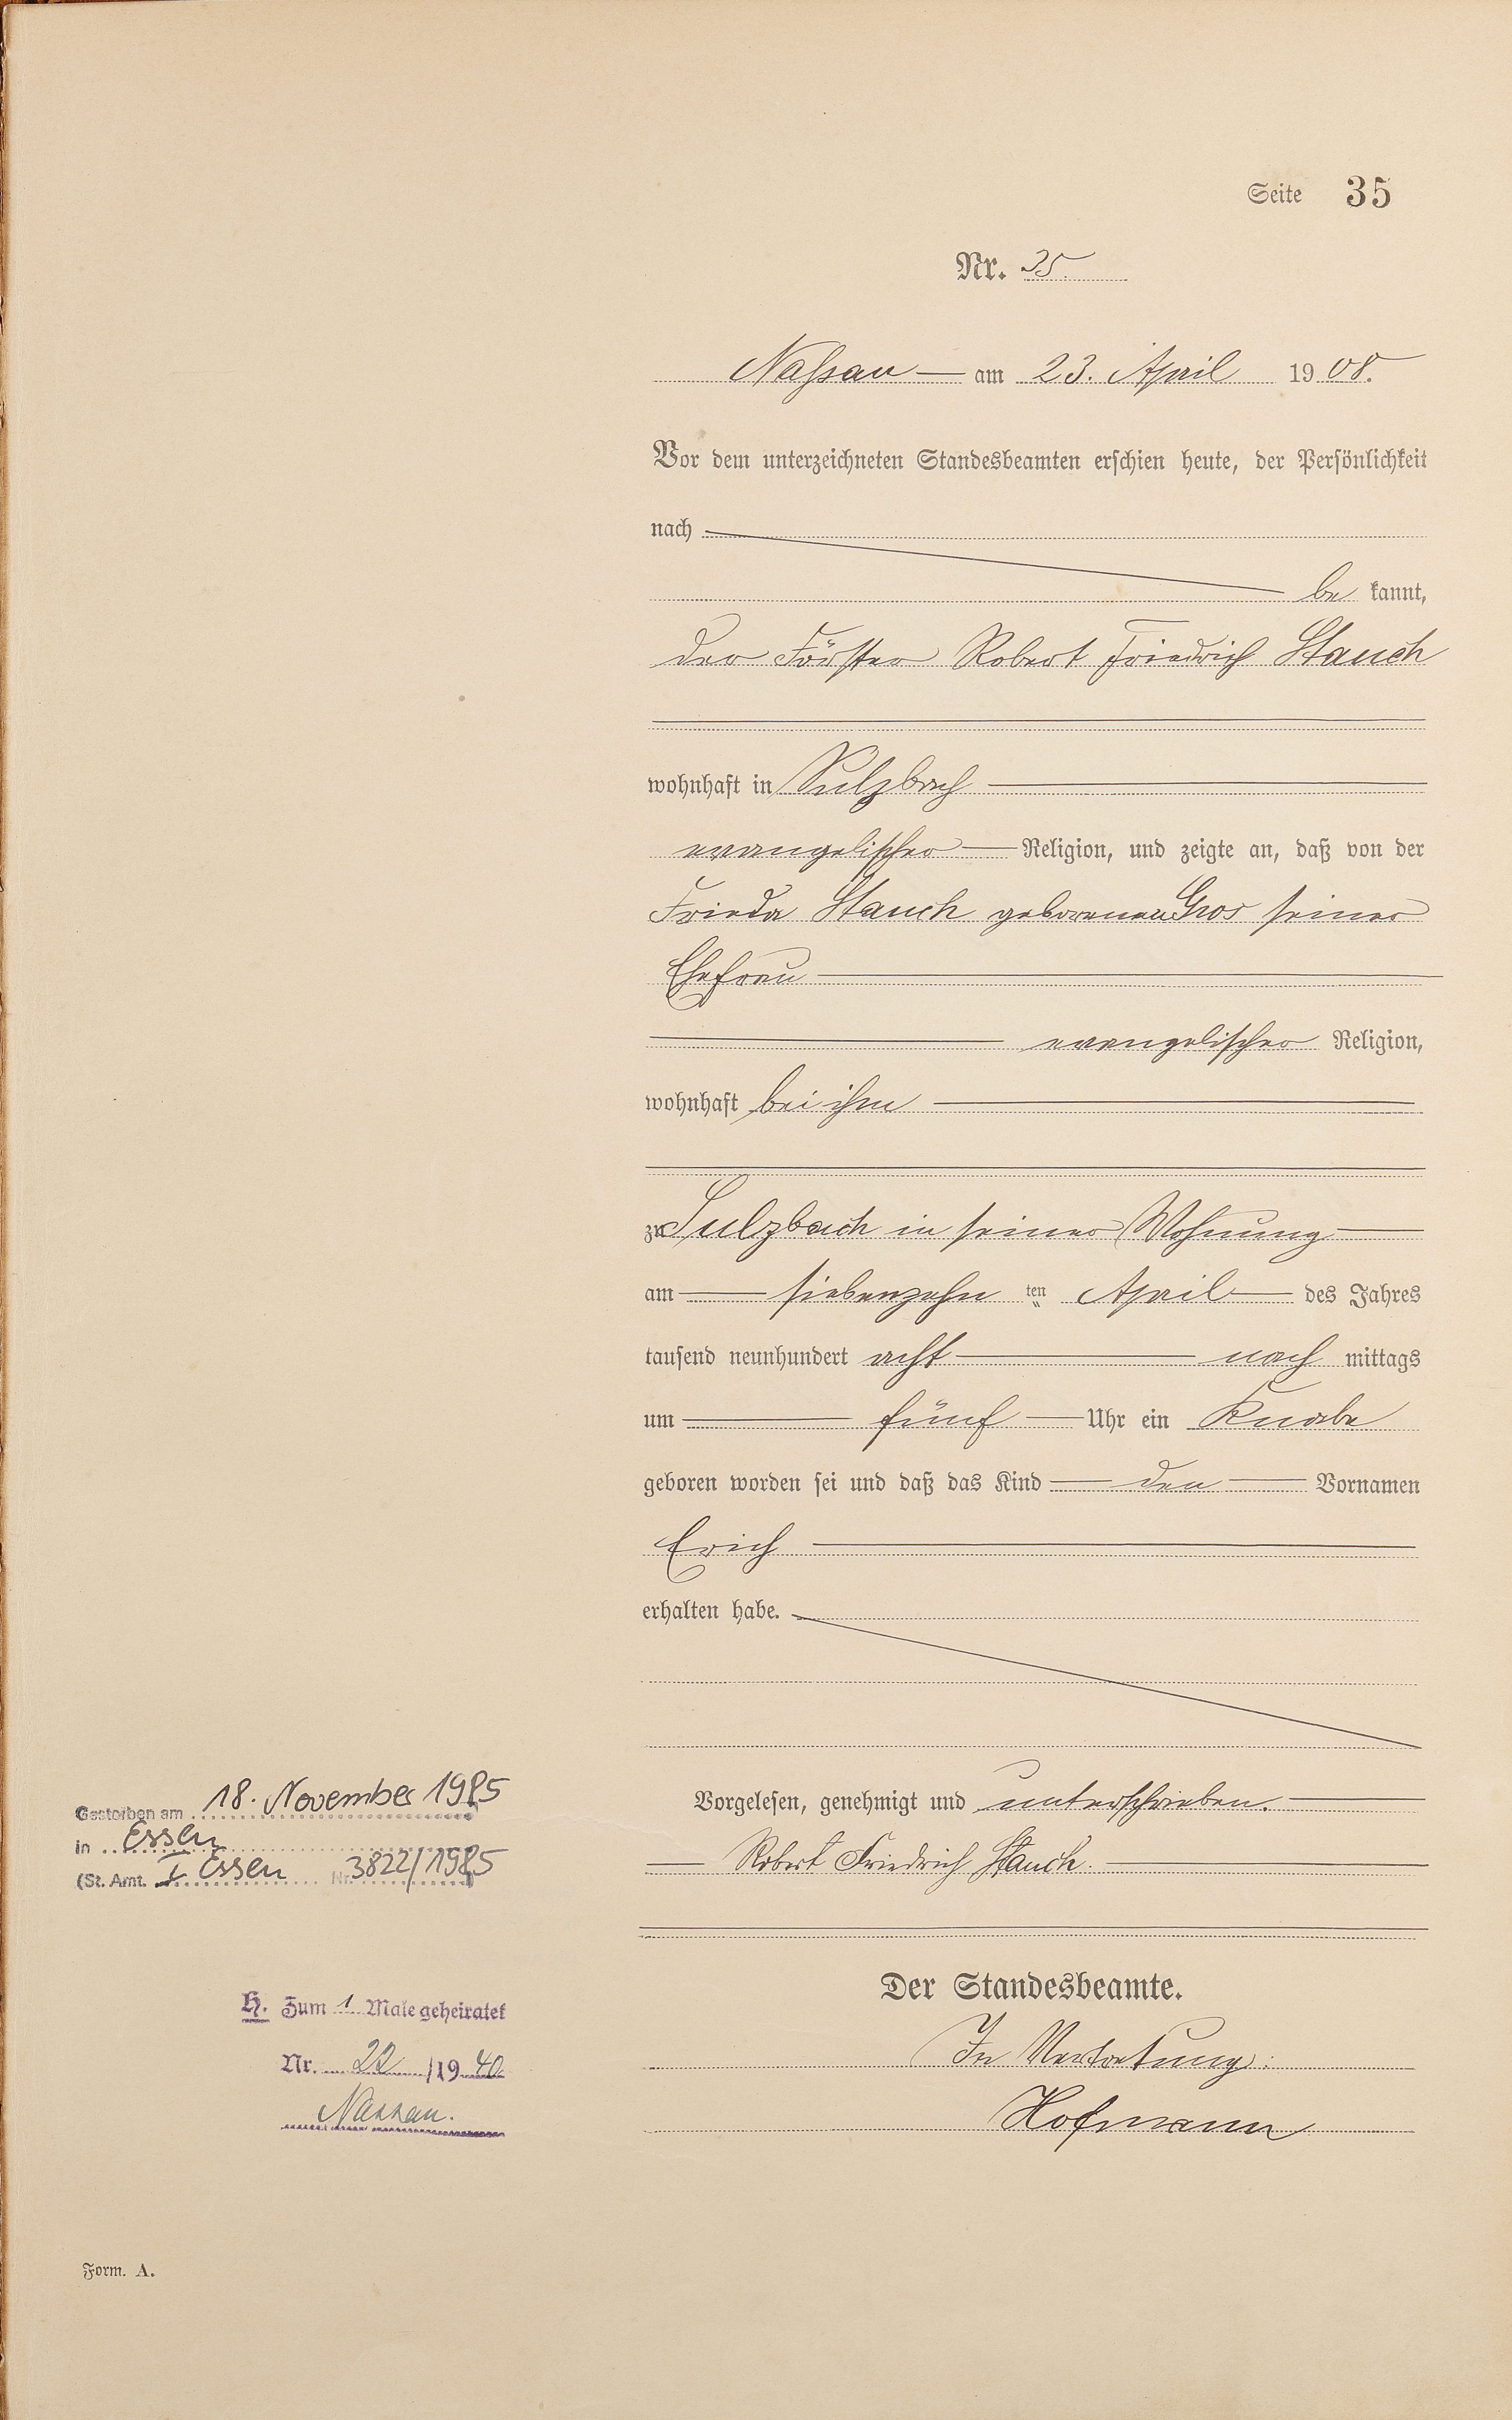 Seite 35
Nr. 35.
Nassau am 23. April 1908.
Vor dem unterzeichneten Standesbeamten erschien heute, der Persönlichkeit
nach
be kannt,
der Förster Robert Friedrich Stauch
wohnhaft in Sulzbach
evangelischer Religion, und zeigte an, daß von der
Frieda Stauch geborenen Gros seiner
Ehefrau
evangelischer Religion,
wohnhaft bei ihm
zu Sulzbach in seiner Wohnung
am siebenzehn ten April des Jahres
tausend neunhundert acht nach mittags
um fünf Uhr ein Knabe
geboren worden sei und daß das Kind den Vornamen
Erich
erhalten habe.
Vorgelesen, genehmigt und unterschrieben.
Robert Friedrich Stauch.
Der Standesbeamte.
In Vertretung:
Hofmann
Gestorben am 18. November 1985
in Essen
(St. Amt. I Essen Nr. 3822/1985
H. Zum 1. Male geheiratet
Nr. 22 /1940
Nassau.
Form. A.